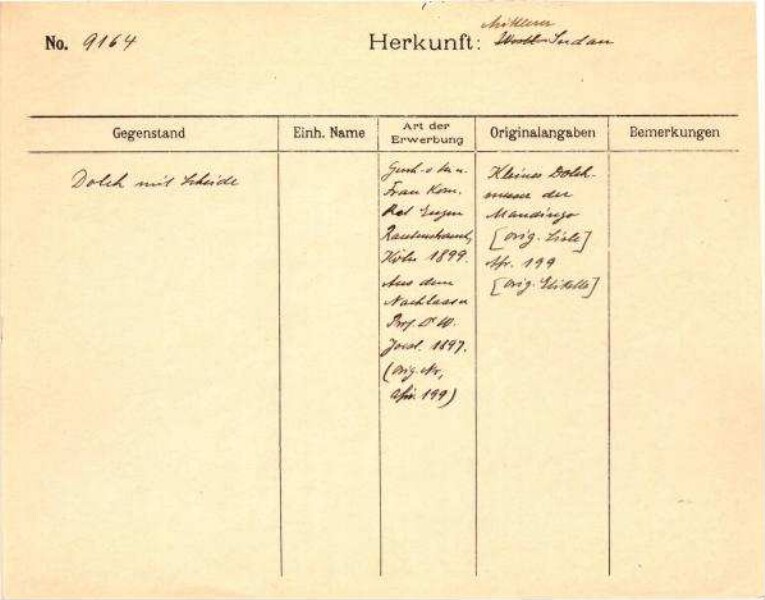 No. 9164
Herkunft: Mittlerer Sudan
Gegenstand
Einh. Name
Art der Erwerbung
Originalangaben
Bemerkungen
Dolch mit Scheide
Frau Kom.
Rat Eugen
Rautenstrauch,
Köln 1899.
Aus dem
Nachlasse
Prof. Dr W.
Joest. 1897.
(orig. Nr,
Afr. 199)
Kleines Dolch-
messer der
Mandingo
[orig. Liste]
Afr. 199
[orig. Etikette]